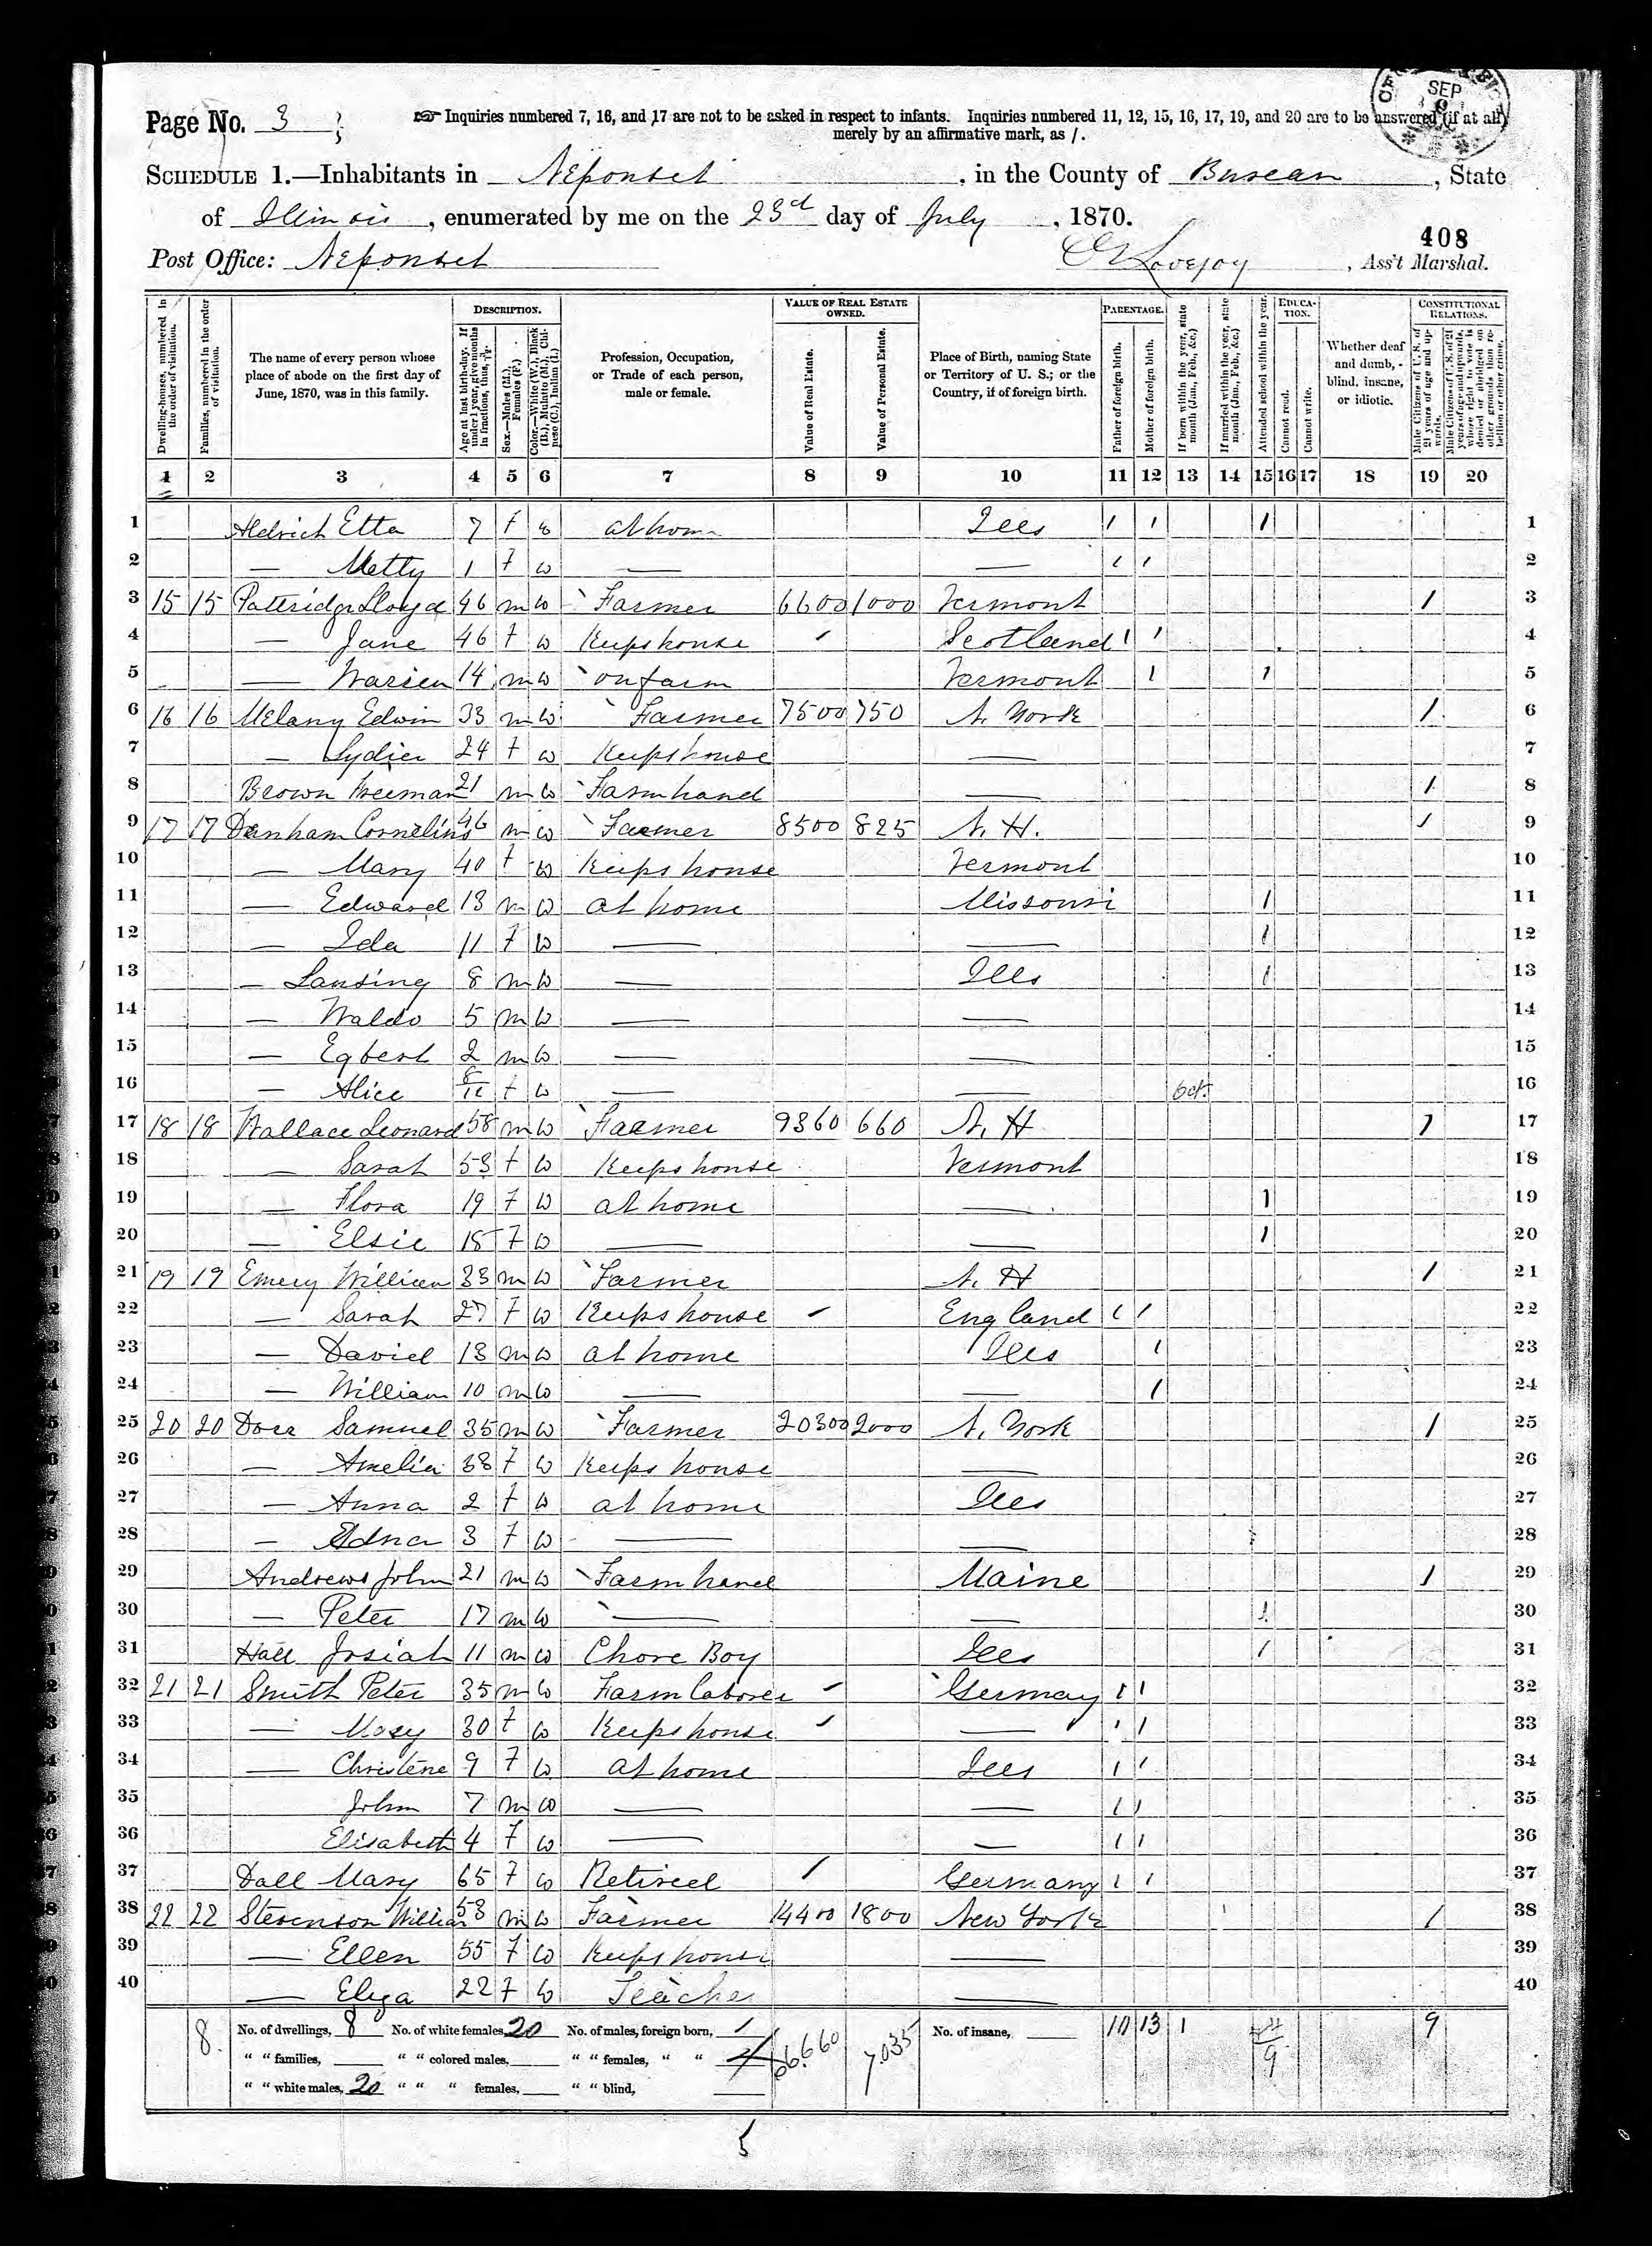 Page No. 3
☞ Inquiries numbered 7, 16, and 17 are not to be asked in respect to infants. Inquiries numbered 11, 12, 15, 16, 17, 19, and 20 are to be answered (if at all)
merely by an affirmative mark, as /.
SEP
SCHEDULE 1.—Inhabitants in Neponset, in the County of Bureau, State
of Illinois, enumerated by me on the 23d day of July, 1870.
408
Post Office: Neponset
Lovejoy, Ass't Marshal.
Dwelling-houses, numbered in the order of visitation.
Families, numbered in the order of visitation.
The name of every person whose place of abode on the first day of June, 1870, was in this family.
DESCRIPTION.
Age at last birth-day. If under 1 year, give months in fractions, thus, 3/12.
Sex.—Males (M.), Females (F.)
Color.—White (W.), Black (B.), Mulatto (M.), Chinese (C.), Indian (I.)
Profession, Occupation, or Trade of each person, male or female.
VALUE OF REAL ESTATE OWNED.
Value of Real Estate.
Value of Personal Estate.
Place of Birth, naming State or Territory of U. S.; or the Country, if of foreign birth.
PARENTAGE.
Father of foreign birth.
Mother of foreign birth.
If born within the year, state month (Jan., Feb., &c.)
If married within the year, state month (Jan., Feb., &c.)
Attended school within the year.
EDUCATION.
Cannot read.
Cannot write.
Whether deaf and dumb, blind, insane, or idiotic.
CONSTITUTIONAL RELATIONS.
Male Citizens of U. S. of 21 years of age and upwards.
Male Citizens of U. S. of 21 years of age and upwards, whose right to vote is denied or abridged on other grounds than rebellion or other crime.
1 2 3 4 5 6 7 8 9 10 11 12 13 14 15 16 17 18 19 20
1 Aldrich Etta 7 f at hom Ills / / / 1
2 — Metty 1 f w — — / / 2
3 15 15 Lloyd 46 m w Farmer 6600 1000 Vermont / 3
4 — Jane 46 f w Keeps house Scotland / / 4
5 — Warren 14 m w on farm Vermont / / 5
6 16 16 Melany Edwin 33 m w Farmer 7500 750 N. York / 6
7 — Lydia 24 f w Keeps house — 7
8 Brown Freeman 21 m w Farm hand — / 8
9 17 17 Danham Cornelius 46 m w Farmer 8500 825 N. H. / 9
10 — Mary 40 f w Keeps house Vermont 10
11 — Edward 13 m w at home Missouri / 11
12 — Ida 11 f w — — / 12
13 — Lansing 8 m w — Ills / 13
14 — Waldo 5 m w — — 14
15 — Egbert 2 m w — — 15
16 — Alice 8/12 f w — — Oct. 16
17 18 18 Wallace Leonard 58 m w Farmer 9360 660 N. H / 17
18 — Sarah 53 f w Keeps house Vermont 18
19 — Flora 19 f w at home — / 19
20 — Elsie 15 f w — — / 20
21 19 19 Emery William 33 m w Farmer N. H / 21
22 — Sarah 27 f w Keeps house England / / 22
23 — David 13 m w at home Ills / 23
24 — William 10 m w — — / 24
25 20 20 Samuel 35 m w Farmer 20300 2000 N. York / 25
26 — Amelia 38 f w Keeps house — 26
27 — Anna 2 f w at home Ills 27
28 — Edna 3 f w — — 28
29 Andrews John 21 m w Farm hand Maine / 29
30 — Peter 17 m w — — / 30
31 Hall Josiah 11 m w Chore Boy Ills / 31
32 21 21 Smith Peter 35 m w Farm laborer Germany / / 32
33 — Mary 30 f w Keeps house — / / 33
34 — Christene 9 f w at home Ills / / 34
35 John 7 m w — — / / 35
36 Elisabeth 4 f w — — / / 36
37 Dall Mary 65 f w Retired Germany / / 37
38 22 22 Stevenson William 58 m w Farmer 14400 1800 New York / 38
39 — Ellen 55 f w Keeps house — 39
40 — Eliza 22 f w Teacher — 40
8. No. of dwellings, 8 No. of white females, 20 No. of males, foreign born, 1 66.660 7.035 No. of insane, 10 13 1 9 9
" " families, " " colored males, " " females, " " 4
" " white males, 20 " " " females, " " blind,
5